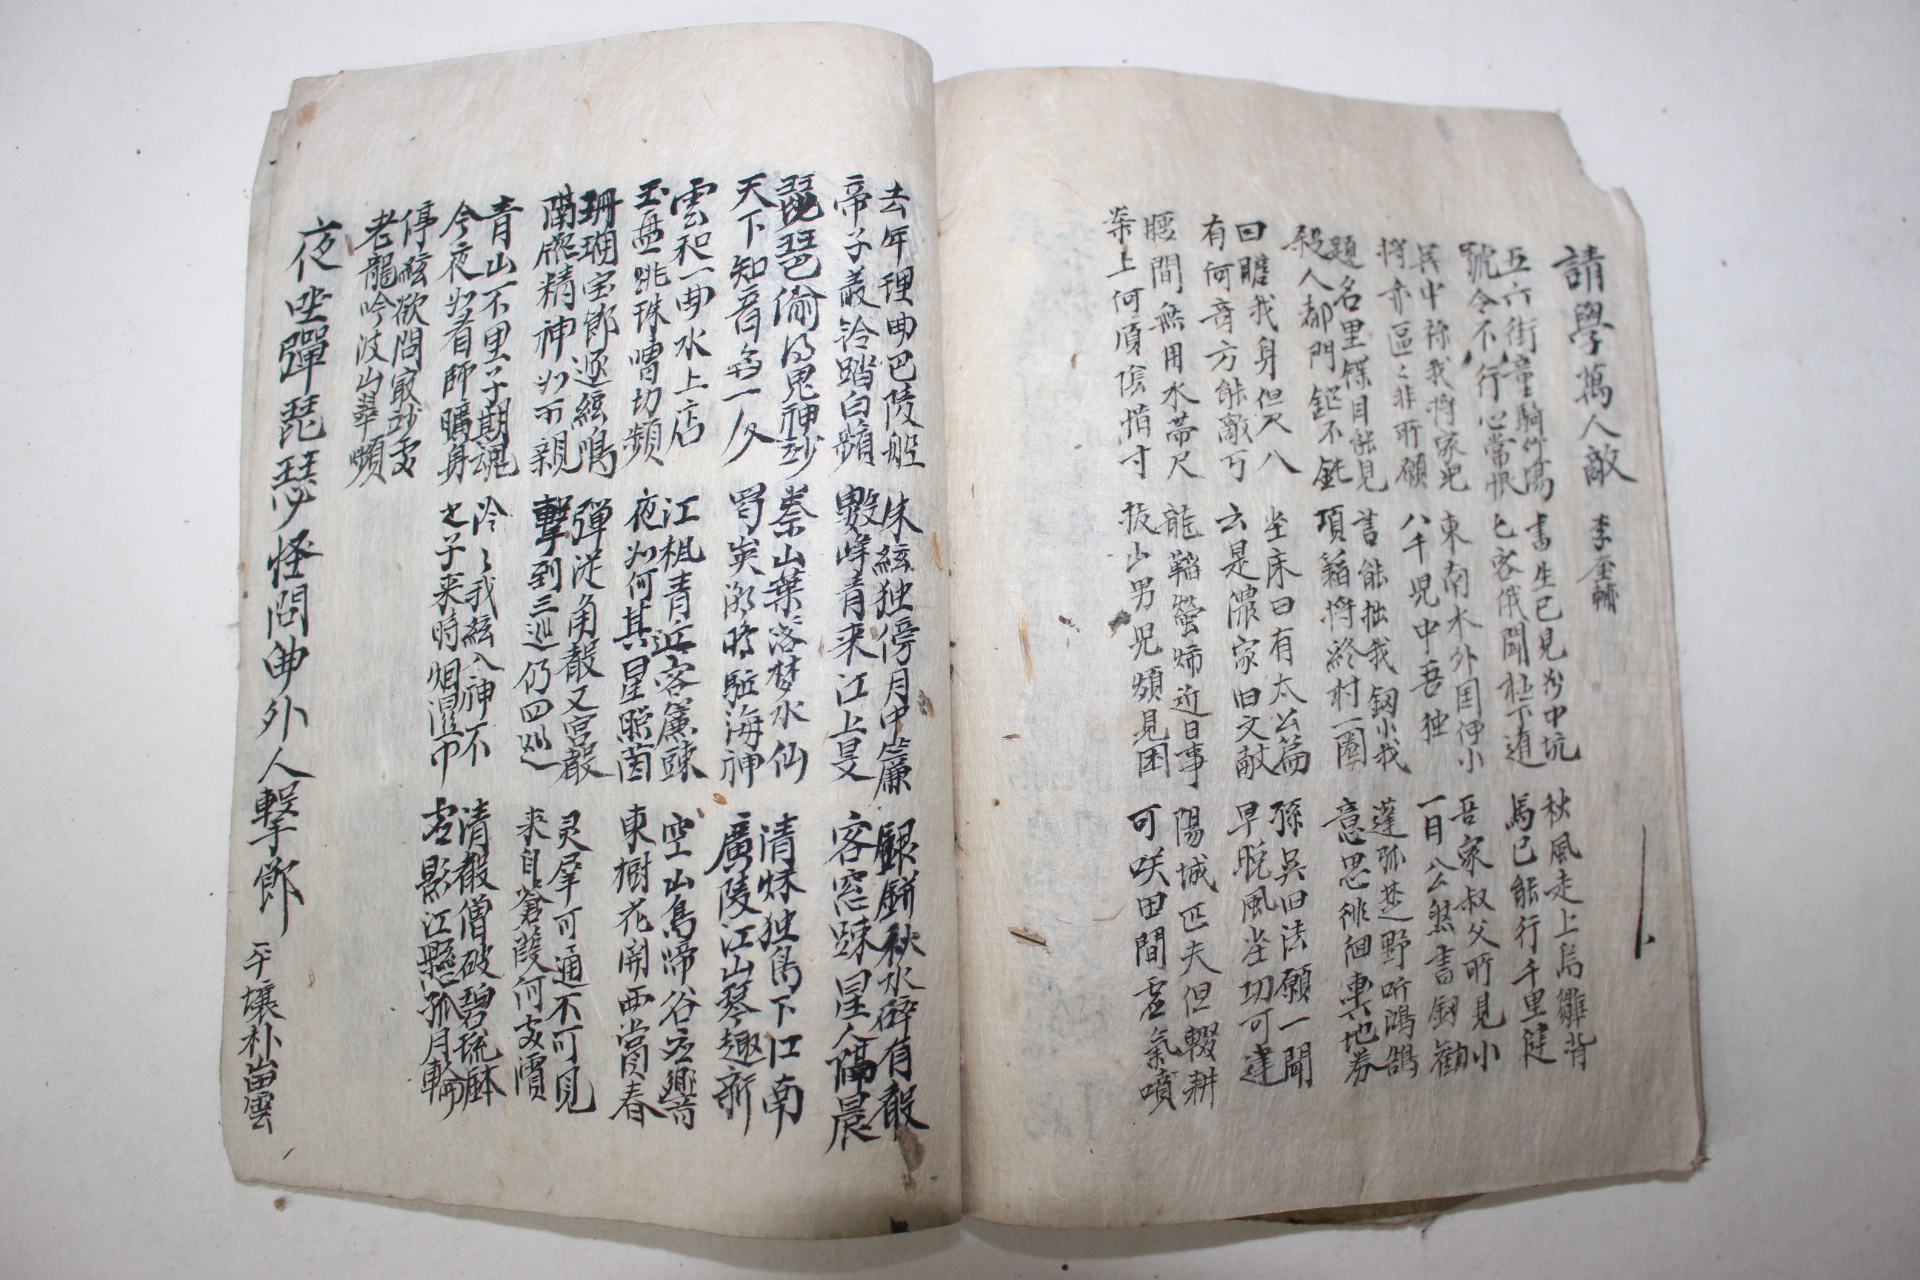 請學萬人敵 李奎軿
五六街童騎竹馬 書生已見分中坑 秋風走上烏騅背
號令不行心常恨 七客俄聞杜下逍 馬已能行千里健
其中祢我將家兒 東南水外國伊小 吾家叔父所見小
將亦區〻非所願 八千児中吾独 一日公煞書釼勸
題名里鏁目能見 書能拙我釼小我 蓬弧楚野听鴻鵠
殺人都門鉅不鈍 項籍將終村一圈 意思徘徊輿地券
回瞻我身但尺八 坐床曰有太公篇 孫吳旧法願一聞
有何音方能敵丂 云是儂家旧文獻 早晩風塵切可達
腰間無用水帶尺 龍韜螢㛑近日事 陽城匹夫但輟耕
案上何須陰惜寸 拔山男児頻見困 可咲田間虛氣噴
去年理曲巴陵船 朱絃独傍月中簾 銀缾秋水碎有聲
帝子叢鈴踏白蘋 數峰青来江上旻 客窓踈星人隔晨
琵琶偷得鬼神玅 秦山葉落梦水仙 清秋独鳥下江南
天下知音兮一人 蜀炭㴬時駐海神 廣陵江山琴趣新
雲和一曲水上店 江柤青近客簾踈 空山鳥啼谷应響
玉盘跳珠嘈切頻 夜如何其星照茵 東樹花開西賞春
珊瑚宝節逐絃鳴 彈従角聲又宮聲 灵犀可通不可見
隔窓精神如可親 擊到三巡仍四巡 来自蒼葭何处賔
青山不里子期魂 泠〻我絃入神不 清聲僧破碧琉酥
今夜如看師曠身 之子来時烟湿巾 虛影江懸孤月輪
停絃欲問㝡玅處
老龍吟波山翠嚬
夜坐彈琵琶怪問曲外人擊節 平壤朴崗雲